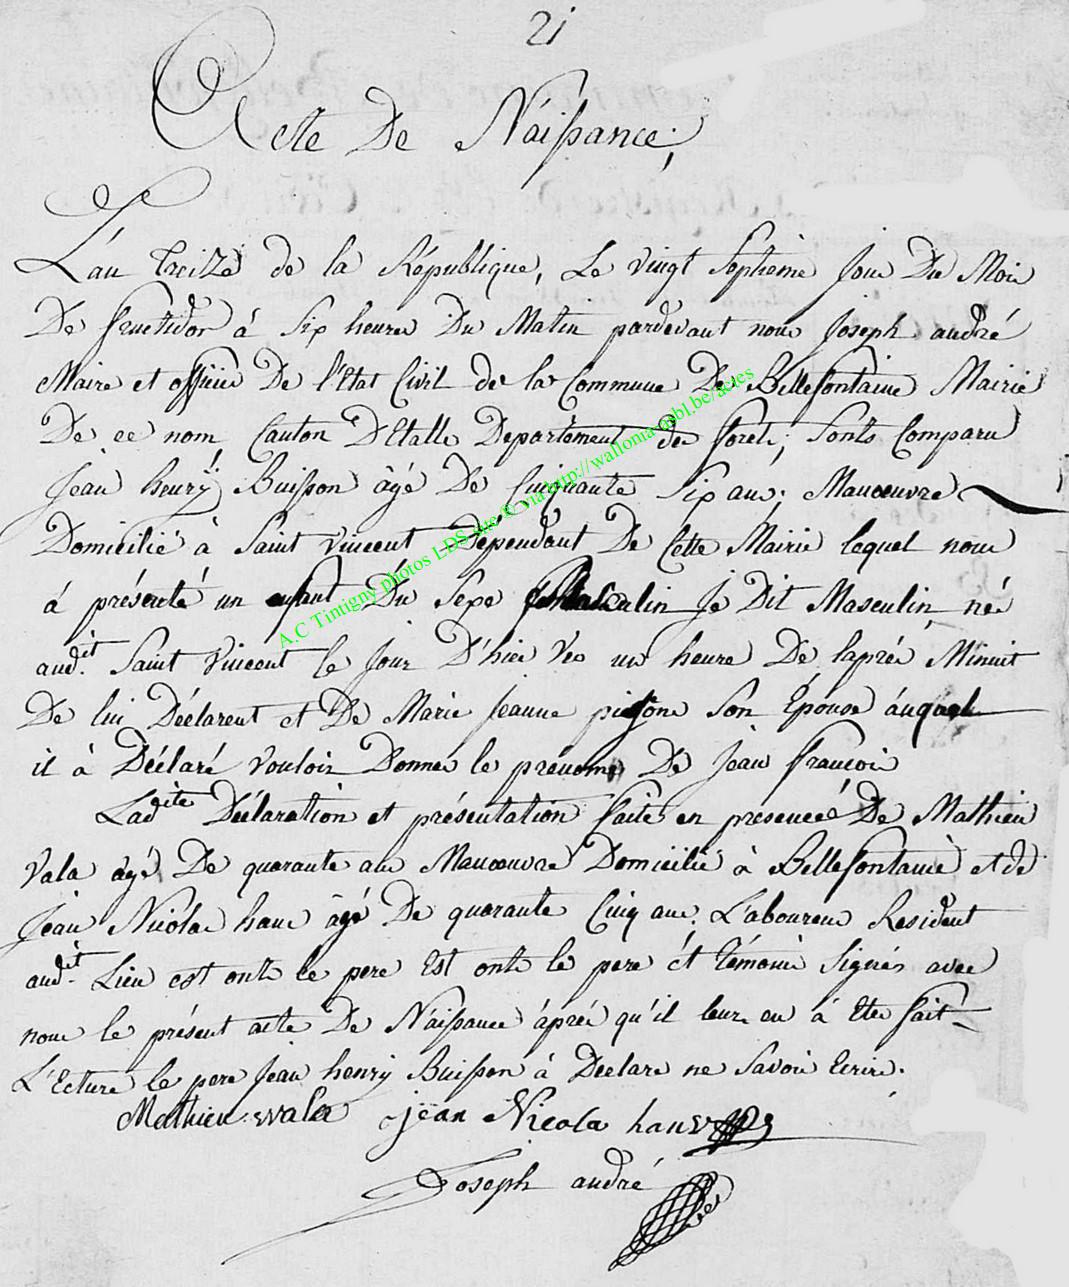 21
Acte De Naissance,
L'an treize de la République, Le vingt septieme Jour Du Mois
De fructidor á Six heures Du Matin pardevant nous Joseph andré
Maire et officier De l'Etat Civil de la Commune De Bellefontaine Mairie
De ce nom Canton D'Etalle Departement des forêts; Sonts Comparu
Jean henrÿ Buisson âgé De Cinquante Six ans; Manoeuvre
Domicilié à Saint Vincent Dépendant De Cette Mairie lequel nous
á présenté un enfant Du Sexe Je Dit Masculin, né
aud.it Saint Vincent le Jour D'hier Ver un heure De l'aprés Minuit
De lui Déclarent et De Marie Jeanne Son Épouse áuquel
il à Déclaré Vouloir Donner le prénoms De Jean françois
Ladite Déclaration et présentation faite en presencé De Mathieu
Vala âgé De quarante ans Manoeuvre Domicilié à Bellefontaine et de
Jean Nicolas hans âgé De quarante Cinq ans. L'aboureur Resident
aud.it Lieu est onts le pere Est onts le pere ét témoins Signés avec
nous le présent acte De Naissance áprés qu'il leurs en á Eté fait
L'Ecture le pere Jean henrÿ Buisson à Declare ne Savoir Ecrire.
Mathieu wala jean Nicola hans
Joseph andré
A.C Tintigny photos LDS site © via http://wallonia-asbl.be/actes